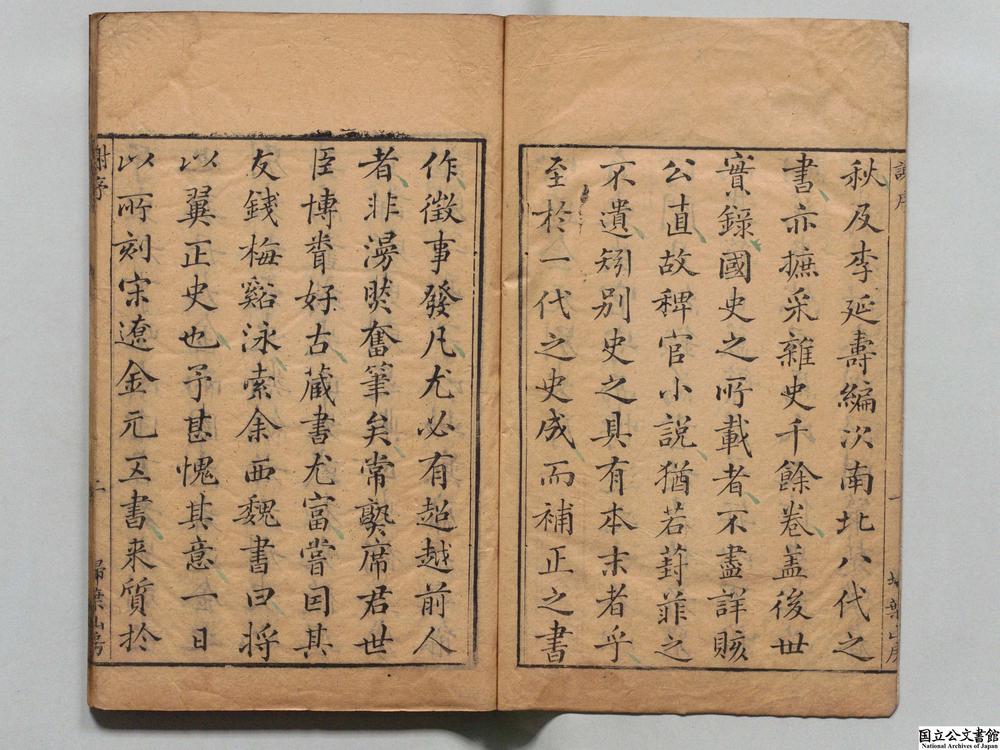 秋及李延壽編次南北八代之
書亦摭采雜史千餘卷盖後世
實錄國史之所載者不盡詳賅
公直故稗官小說猶若葑菲之
不遺矧別史之具有本末者乎
至於一代之史成而補正之書
作徵事發凡尤必有超越前人
者非漫肰奮筆矣常熟席君世
臣博贍好古藏書尤富嘗因其
友錢梅谿泳索余西魏書曰將
以翼正史也予甚愧其意一日
以所刻宋遼金元五書来質於
謝序
二
掃葉山房
国立公文書館
National Archives of Japan